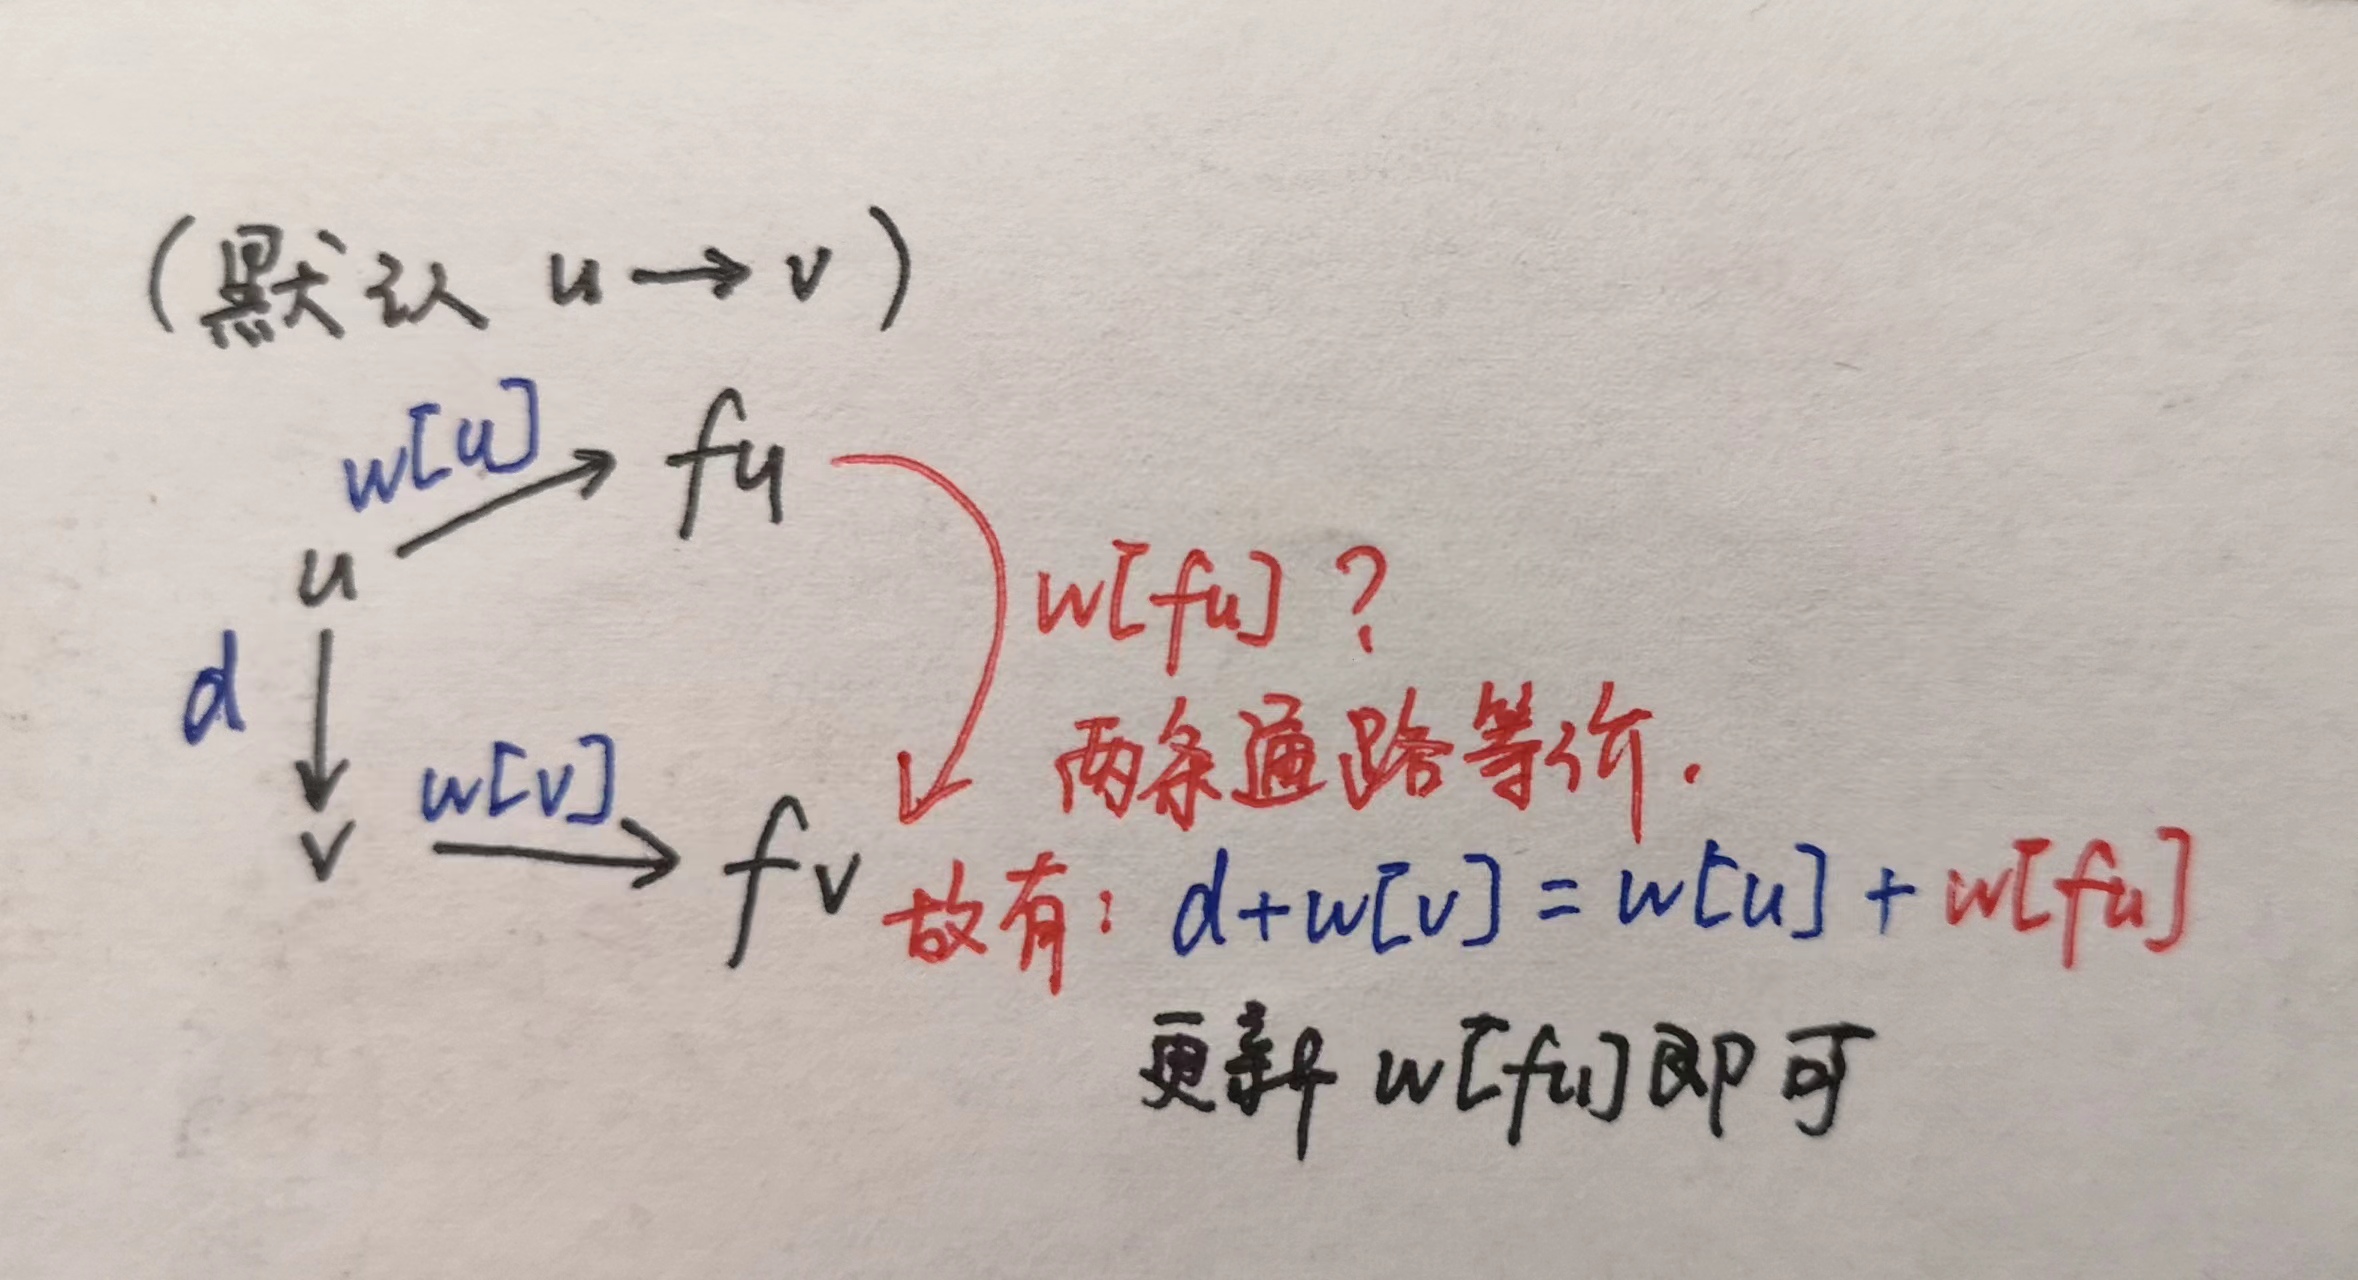 (默认 u→v)
w[u]
fu
u
w[fu]?
d
两条通路等价.
w[v]
v
fv
故有: d+w[v]=w[u]+w[fu]
更新 w[fu]即可